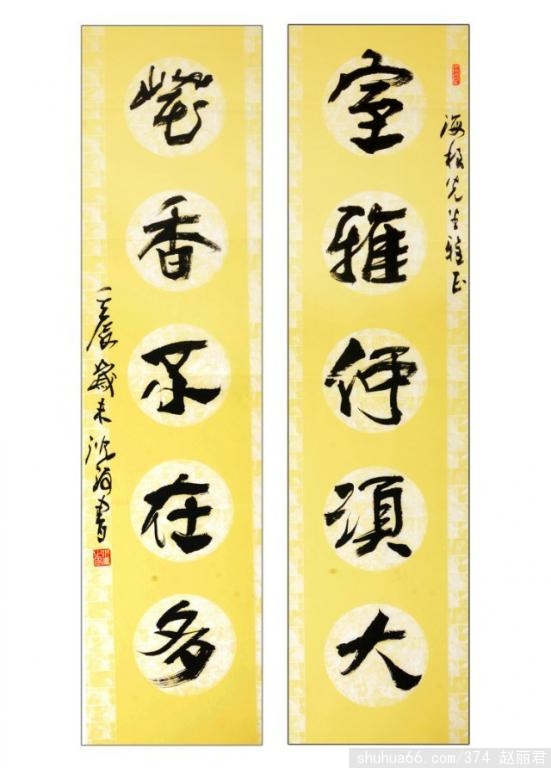 海根先生雅正
室雅何須大
花香不在多
壬辰歲末
書
shuhua66.com/374 赵丽君